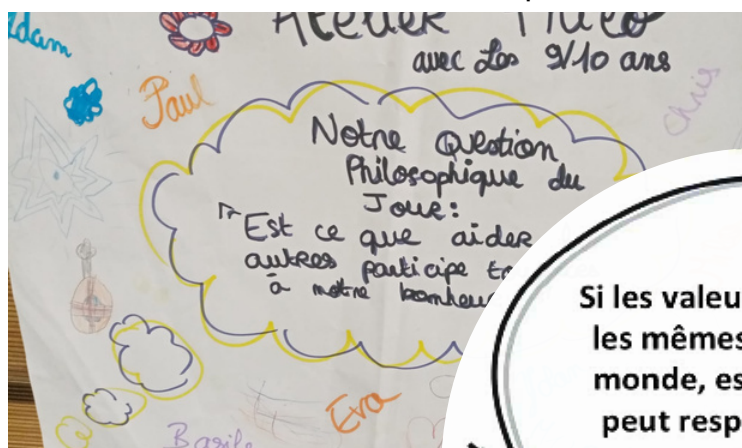 Adam
Atelier Philo
avec Les 9/10 ans
Paul
Chris
Notre Question
Philosophique du
Jour:
Est ce que aider
autres participe
à notre bonheu
Eva
Basile
Si les valeu
les mêmes
monde, es
peut resp